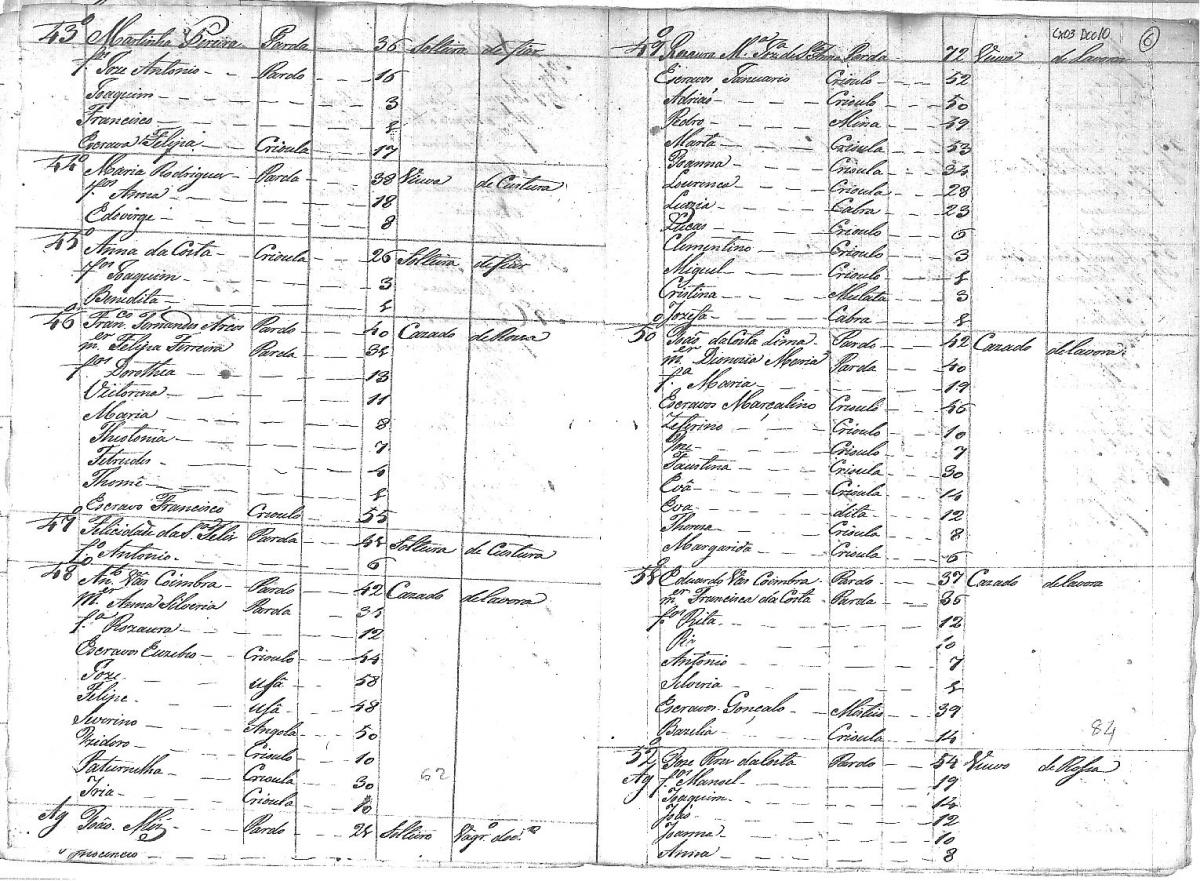 43º Martinha Pereira Parda 36 Solteira de fiar
fºˢ Joze Antonio Pardo 16
Joaquim 3
Francisco 1
Escrava Felipa Crioula 17
44º Maria Rodrigues Parda 38 Viuva de Custura
fºˢ Anna 18
Edivirge 8
45º Anna da Costa Crioula 26 Solteira de fiar
fºˢ Joaquim 3
Benedita 1
46º Franᶜᵒ Fernandes Pardo 40 Cazado de Rossa
mᵉʳ Felipa Ferreira Parda
fºˢ Dorothea 13
Victorina 11
Maria 8
Thiotonia 7
4
Thomé 1
Escravo Francisco Crioulo 55
47º Parda Solteira de Custura
fº Antonio 6
48º Antᵒ Vas Coimbra Pardo 42 Cazado de lavora
Mᵉʳ Anna Silveria Parda
fª Rozaura 12
Escravos Euzebio Crioulo 44
Joze 58
Felipe 48
Siverino Angola 50
Izidoro Crioulo 10
Crioula 30
Iria Crioula
Ag João Pardo Solteiro
Inocencio
62
CX03 DC010 6
49º Parda 72 Viuva de Lavora
Escravos Januario Crioulo 52
Adrião Crioulo 50
Pedro Mina 39
Marta Crioula 53
Joanna Crioula 34
Lourença Crioula 28
Luzia Cabra 23
Lucas Crioulo 6
Clementino Crioulo 3
Miguel Crioulo 1
Cristina Mulata 3
Jozefa Cabra 1
50º João da Costa Lima Pardo 42 Cazado de lavora
mᵉʳ Dionizia Maria Parda 40
fª Maria 19
Escravos Marçalino Crioulo 46
Zeferino Crioulo 10
Joze Crioulo 7
Faustina Crioula 30
Eva Crioula 14
Eva dita 12
Crioula 8
Margarida Crioula 6
51º Eduardo Vas Coimbra Pardo 37 Cazado de lavora
mᵉʳ Francisca da Costa Parda 36
fºˢ Rita 12
10
Antonio 7
Silveria 1
Escravos Gonçalo 39
Bazilia Crioula 14
84
52º Joze da Costa Pardo 54 Viuvo de Rossa
Ag fºˢ Manoel 19
Joaquim 14
João 12
Joanna 10
Anna 8